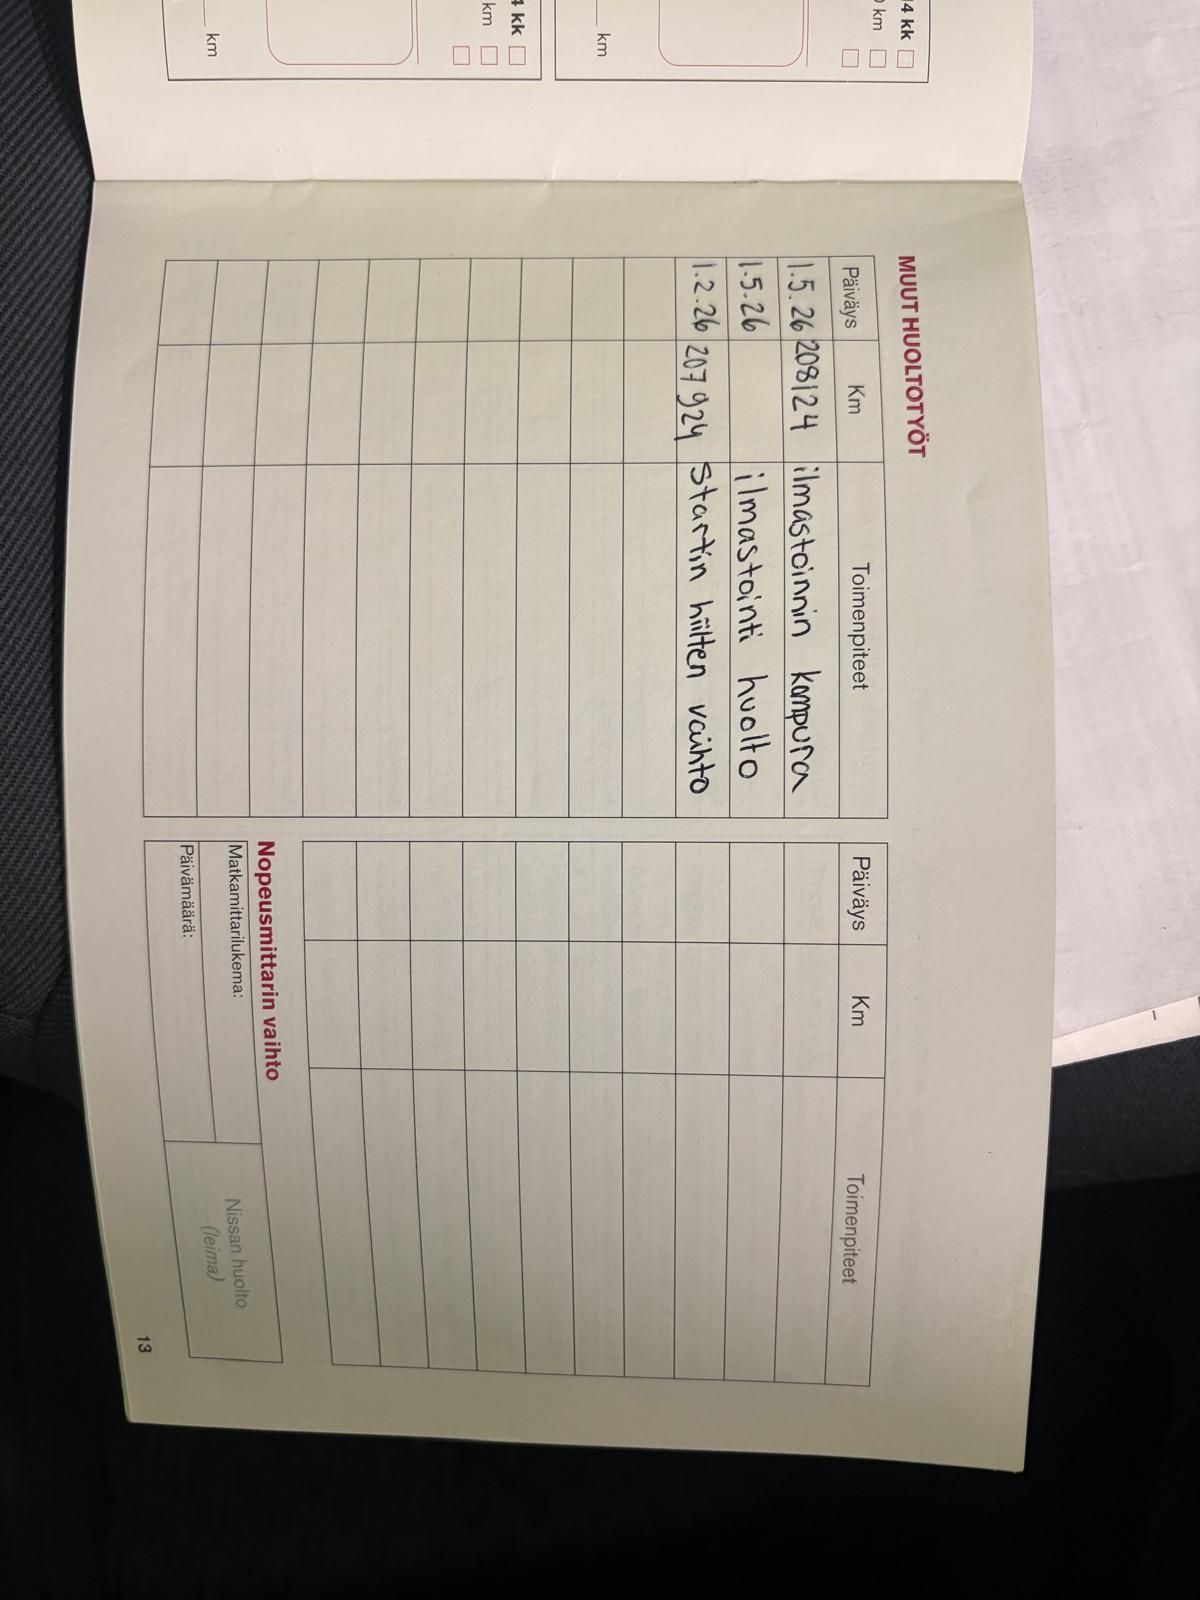 14 kk
0 km
km
4 kk
km
km
MUUT HUOLTOTYÖT
Päiväys Km Toimenpiteet
1.5.26 208124 ilmastoinnin kompura
1.5.26 ilmastointi huolto
1.2.26 207 924 Startin hiilten vaihto
Päiväys Km Toimenpiteet
Nopeusmittarin vaihto
Matkamittarilukema:
Päivämäärä:
Nissan huolto
(leima)
13